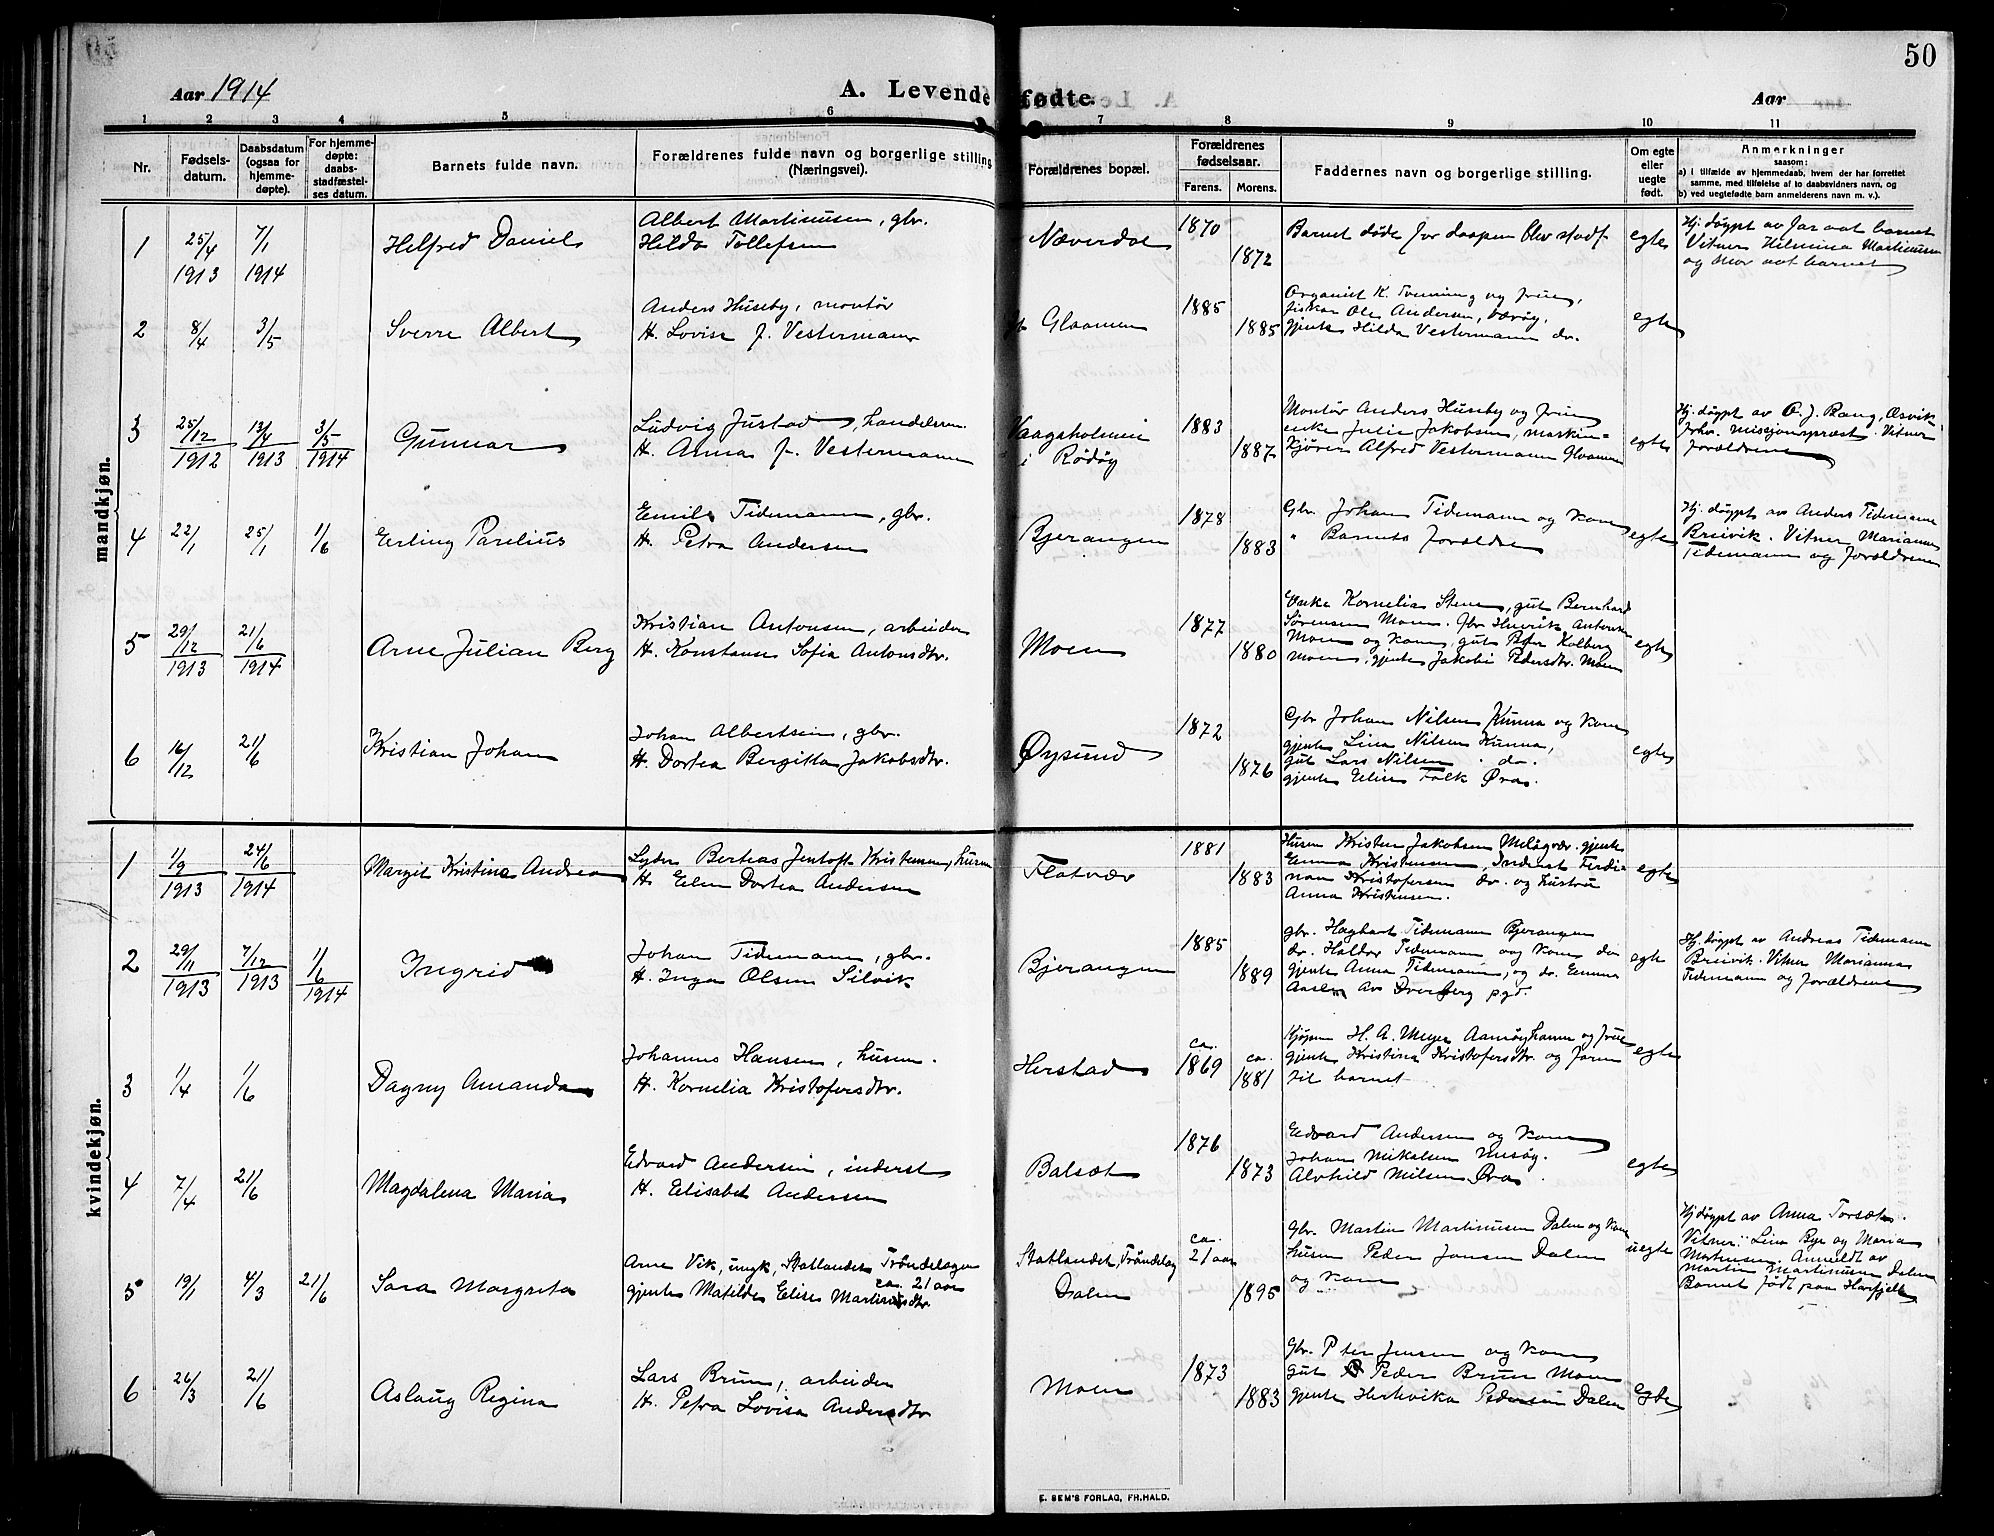 50
Aar 1914
A. Levende fødte.
Aar
1 2 3 4 5 6 7 8 9 10 11
Nr.
Fødsels-
datum.
Daabsdatum
(ogsaa for
hjemme-
døpte).
For hjemme-
døpte:
daabs-
stadfæstel-
ses datum.
Barnets fulde navn.
Forældrenes fulde navn og borgerlige stilling
(Næringsvei).
Forældrenes bopæl.
Forældrenes
fødselsaar.
Farens. Morens.
Faddernes navn og borgerlige stilling.
Om egte
eller
uegte
født.
Anmerkninger
saasom:
a) i tilfælde av hjemmedaab, hvem der har forrettet
samme, med tilføielse af to daabsvidners navn, og
b) ved uegtefødte barn anmelderens navn m. v.).
mandkjøn.
1
25/4 1913
7/1 1914
Helfred Daniel
Albert Martinusen, gbr.
Hilda Tollefsen
Næverdal
1870
1872
Barnet døde før daapen blev stadf.
egte
Hj. døypt av far aat barnet
Vitner Helmina Martinusen
og mor aat barnet
2
8/4
3/5
Sverre Albert
Anders Huseby, montør
H. Lovise f. Vestermann
Glaamen
1885
1885
Organist K. Tvenning og frue,
fisker Ole Andersen, Værøy,
gjente Hilda Vestermann do.
egte
3
25/12 1912
13/4 1913
3/5 1914
Gunnar
Ludvig Justad, handelsm.
H. Anna f. Vestermann
Vaagaholmen
i Rødøy
1883
1887
Montør Anders Huseby og frue
enke Julie Jakobsen, maskin-
kjører Alfred Vestermann Glaamen
egte
Hj. døypt av O. J. Bang, Æsvik
fhv. misjonsprest. Vitner
forældrene
4
22/1
25/1
1/6
Erling Parelius
Emil Tidemann, gbr.
H. Petra Andersen
Bjerangen
1878
1883
Gbr. Johan Tidemann og kone
" Barnets forældre
egte
Hj. døypt av Anders Tidemann
Breivik. Vitner Marianna
Tidemann og forældrene
5
29/12 1913
21/6 1914
Arne Julian Berg
Kristian Antonsen, arbeider
H. Konstanse Sofia Antonsdtr.
Moen
1877
1880
Enke Kornelia Stene, gut Bernhard
Sørensen Moen. Gbr Henrik Antonsen
Moen og kone, gut Peder Kolberg
Moen, gjente Jakobie Pedersdtr. Moen
egte
6
16/12
21/6
Kristian Johan
Johan Albertsen, gbr.
H. Dortea Bergitta Jakobsdtr.
Øysund
1872
1876
Gbr Johan Nilsen Kunna og kone
gjente Lina Nilsen Kunna,
gut Lars Nilsen do.
gjente Elise Falk Øra.
egte
kvindekjøn.
1
1/9 1913
24/6 1914
Margit Kristine Andrea
Lyder Berteas Jentoft Kristensen, husm
H. Elen Dortea Andersen
Flatvær
1881
1883
Husm Kristen Jakobsen Meløyvær. gjente
Emma Kristensen, Inderst Ferdi-
nan Kristofersen do. og hustru
Anna Kristensen.
egte
2
29/11 1913
7/12 1913
1/6 1914
Ingrid
Johan Tidemann, gbr.
H. Inga Olsen Silvik
Bjerangen
1885
1889
gbr. Hagbart Tidemann Bjerangen
do. Haldor Tidemann og kone do
gjente Anna Tidemann, og do. Emma
Aasen Av Dverberg pgd.
egte
Hj. døypt av Andreas Tidemann
Breivik. Vitner Marianna
Tidemann og forældrene
3
1/4
1/6
Dagny Amanda
Johannes Hansen, husm.
H. Kornelia Kristofersdtr.
Herstad
ca. 1869
ca. 1881
Kjøpm H. A. Meyer Aamøyhamn og frue
gjente Kristina Kristofersdtr. og faren
til barnet
egte
4
7/4
21/6
Magdalena Maria
Edvard Andersen, inderst
H. Elisabet Andersen
Balsæt
1876
1873
Edvard Andersen og kone
Johan Mikalsen Mesøy.
Alvhild Nilsen Øra.
egte
5
19/1
4/3
21/6
Sara Margreta
Arne Vik, ungk, Statlandet Trøndelagen
ca. 21 aar
gjente Matilde Elise Martinusdtr.
Statlandet, Trøndelag
Dalen
ca. 21 aar
1895
Gbr. Martin Martinusen Dalen og kone
husm Peder Jensen Dalen
og kone
uegte
Hj døypt av Anna Torsæt.
Vitner: Lina Bye og Maria
Martinsen. Anmeldt av
Martin Martinusen Dalen
Barnet født paa Harfjell
6
26/3
21/6
Aslaug Regina
Lars Brun, arbeider
H. Petra Lovisa Andersdtr
Moen
1873
1883
Gbr. Peter Jensen og kone
gut Peder Brun Moen
gjente Hertevika Pedersen Dalen
egte
E. SEM'S FORLAG, FR.HALD.